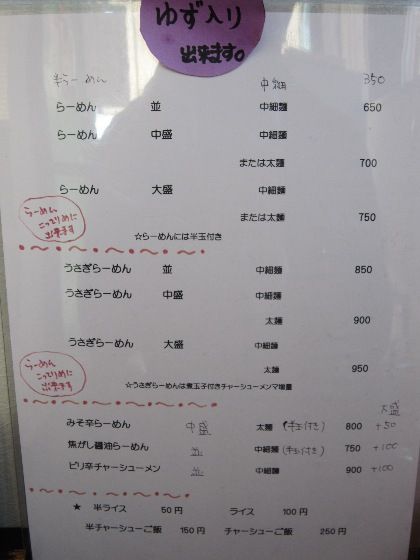 ゆず入り
出来ます。
半らーめん 中細 350
らーめん 並 中細麺 650
らーめん 中盛 中細麺
または太麺 700
らーめん 大盛 中細麺
または太麺 750
らーめん
こってりめに
出来ます
☆らーめんには半玉付き
うさぎらーめん 並 中細麺 850
うさぎらーめん 中盛 中細麺
太麺 900
うさぎらーめん 大盛 中細麺
太麺 950
らーめん
こってりめに
出来ます
☆うさぎらーめんは煮玉子付きチャーシューメンマ増量
大盛
みそ辛らーめん 中盛 太麺 (半玉付き) 800 +50
焦がし醤油らーめん 並 中細麺 (半玉付き) 750 +100
ピリ辛チャーシューメン 並 中細麺 900 +100
★ 半ライス 50円 ライス 100円
半チャーシューご飯 150円 チャーシューご飯 250円